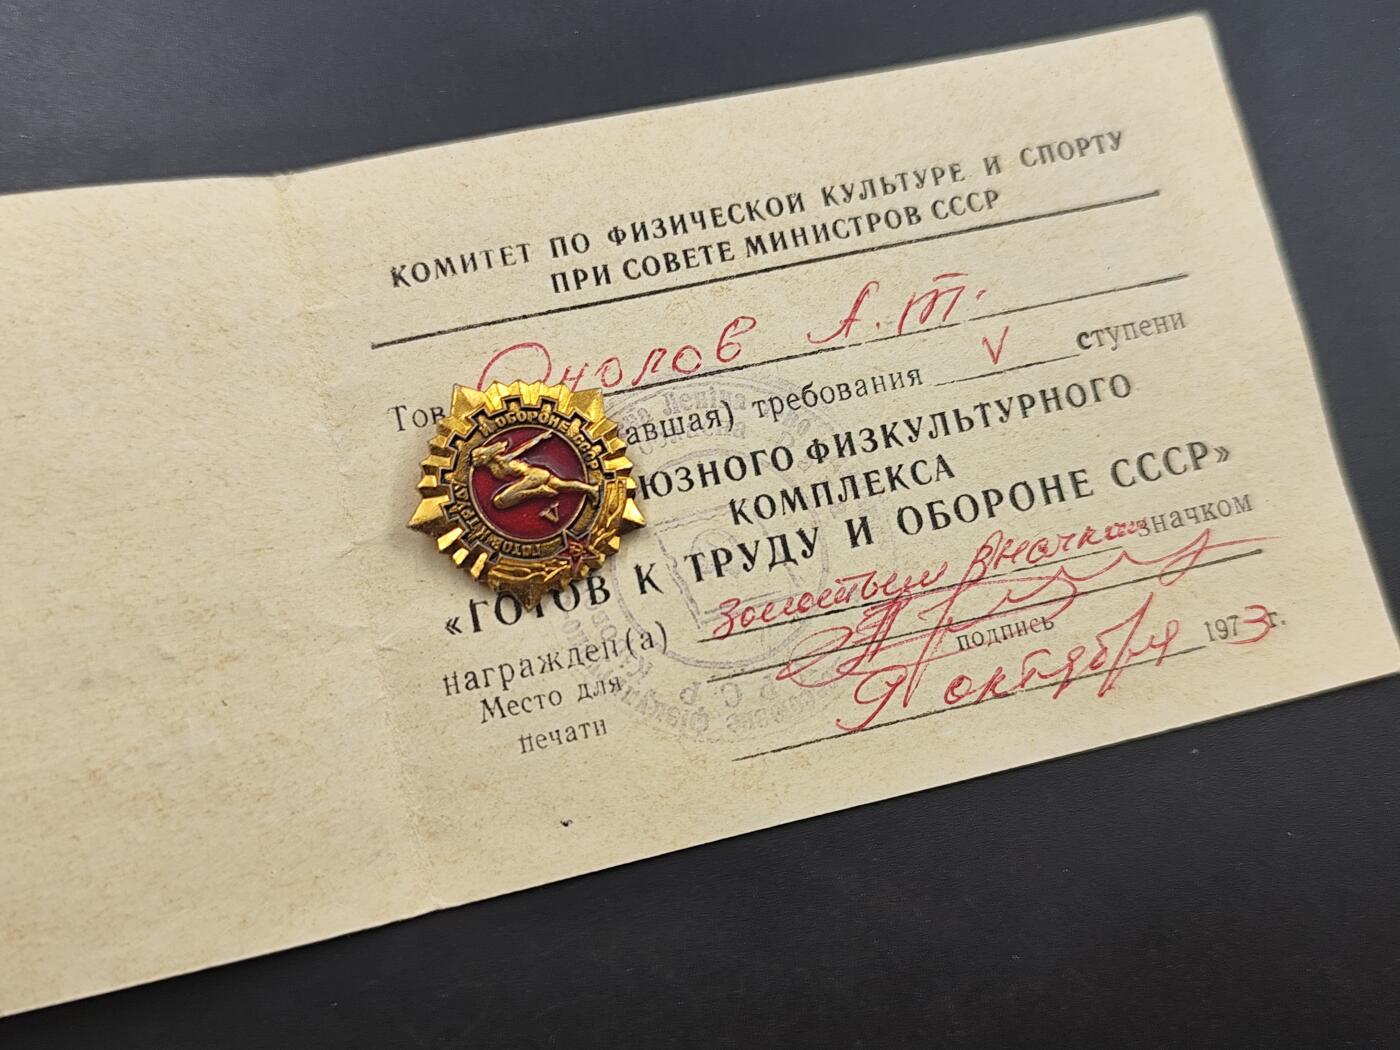 КОМИТЕТ ПО ФИЗИЧЕСКОЙ КУЛЬТУРЕ И СПОРТУ
ПРИ СОВЕТЕ МИНИСТРОВ СССР
Тов А. Т.
авшая) требования V ступени
ЮЗНОГО ФИЗКУЛЬТУРНОГО
КОМПЛЕКСА
«ГОТОВ К ТРУДУ И ОБОРОНЕ СССР»
награжден(а) золотым значком значком
подпись
Место для
печати
9 октября 1973 г.
И ОБОРОНЕ СССР
ГОТОВ К ТРУДУ
V